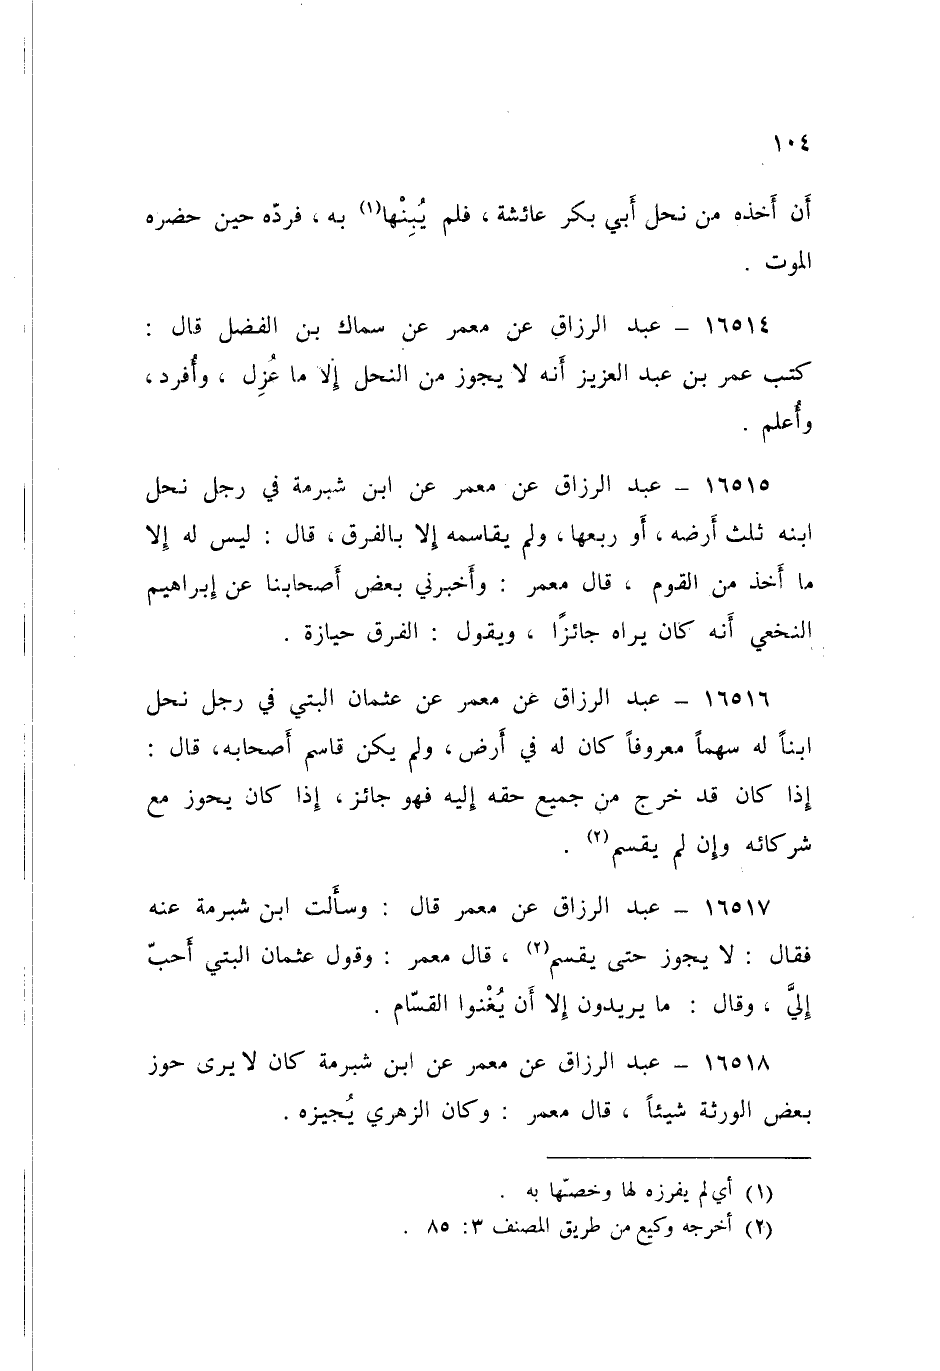 ١٠٤
أَن أَخذه من نحل أَبي بكر عائشة ، فلم يُبِنْها(١) به ، فردّه حين حضره
الموت .
١٦٥١٤ – عبد الرزاق عن معمر عن سماك بن الفضل قال :
كتب عمر بن عبد العزيز أَنه لا يجوز من النحل إِلا ما عُزِل ، وأُفرد ،
وأُعلم .
١٦٥١٥ – عبد الرزاق عن معمر عن ابن شبرمة في رجل نحل
ابنه ثلث أَرضه ، أَو ربعها ، ولم يقاسمه إِلا بالفرق ، قال : ليس له إِلا
ما أَخذ من القوم ، قال معمر : وأَخبرني بعض أَصحابنا عن إِبراهيم
النخعي أَنه كان يراه جائزًا ، ويقول : الفرق حيازة .
١٦٥١٦ – عبد الرزاق عن معمر عن عثمان البتي في رجل نحل
ابناً له سهماً معروفاً كان له في أَرض ، ولم يكن قاسم أَصحابه ، قال :
إِذا كان قد خرج من جميع حقه إِليه فهو جائز ، إِذا كان يحوز مع
شركائه وإِن لم يقسم(٢) .
١٦٥١٧ – عبد الرزاق عن معمر قال : وسأَلت ابن شبرمة عنه
فقال : لا يجوز حتى يقسم(٢) ، قال معمر : وقول عثمان البتي أَحبّ
إِليَّ ، وقال : ما يريدون إِلا أَن يُغْنوا القسّام .
١٦٥١٨ – عبد الرزاق عن معمر عن ابن شبرمة كان لا يرى حوز
بعض الورثة شيئاً ، قال معمر : وكان الزهري يُجيزه .
(١) أي لم يفرزه لها وخصّها به .
(٢) أخرجه وكيع من طريق المصنف ٣: ٨٥ .